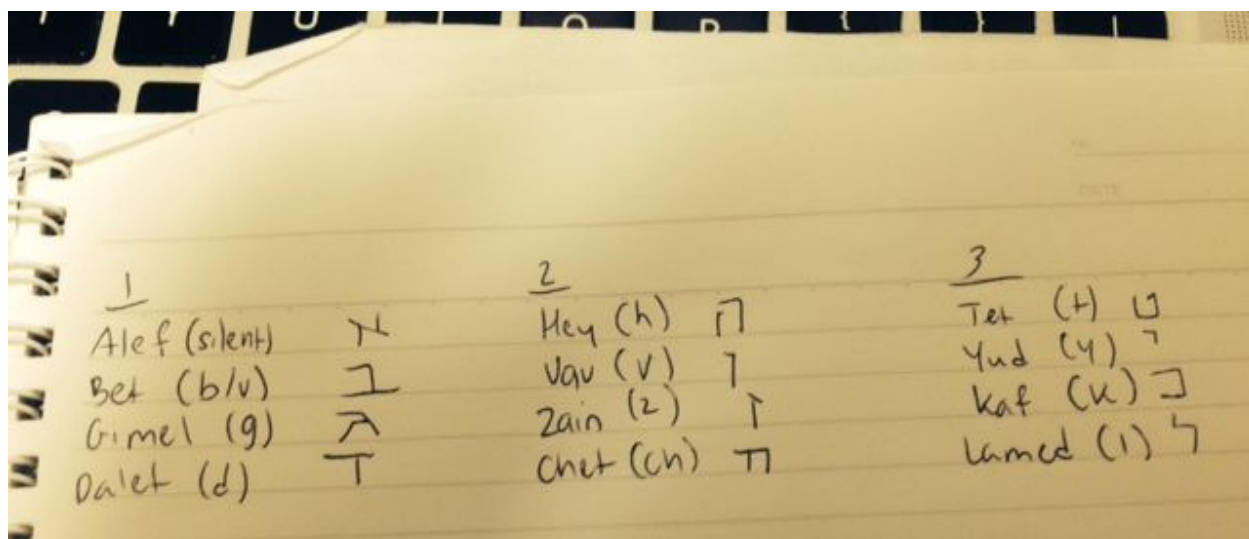 1
Alef (silent) א
Bet (b/v) ב
Gimel (g) ג
Dalet (d) ד
2
Hey (h) ה
Vav (v) ו
Zain (z) ז
Chet (ch) ח
3
Tet (t) ט
Yud (y) י
Kaf (k) כ
Lamed (l) ל
DATE